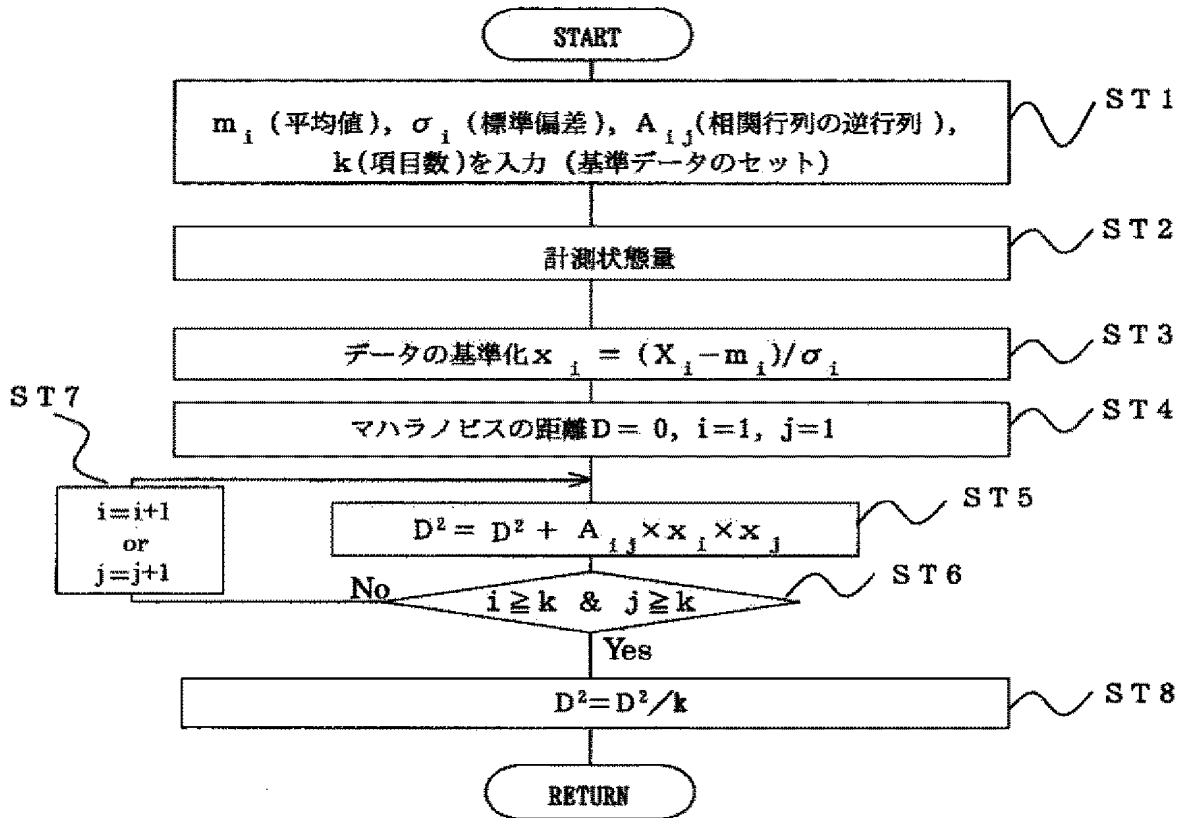 START
m_i (平均値), σ_i (標準偏差), A_ij(相関行列の逆行列),
k(項目数)を入力 (基準データのセット)
ST1
計測状態量
ST2
データの基準化 x_i = (X_i-m_i)/σ_i
ST3
マハラノビスの距離D= 0, i=1, j=1
ST4
ST7
i=i+1
or
j=j+1
D²= D² + A_ij×x_i×x_j
ST5
i≧k & j≧k
ST6
No
Yes
D²=D²/k
ST8
RETURN